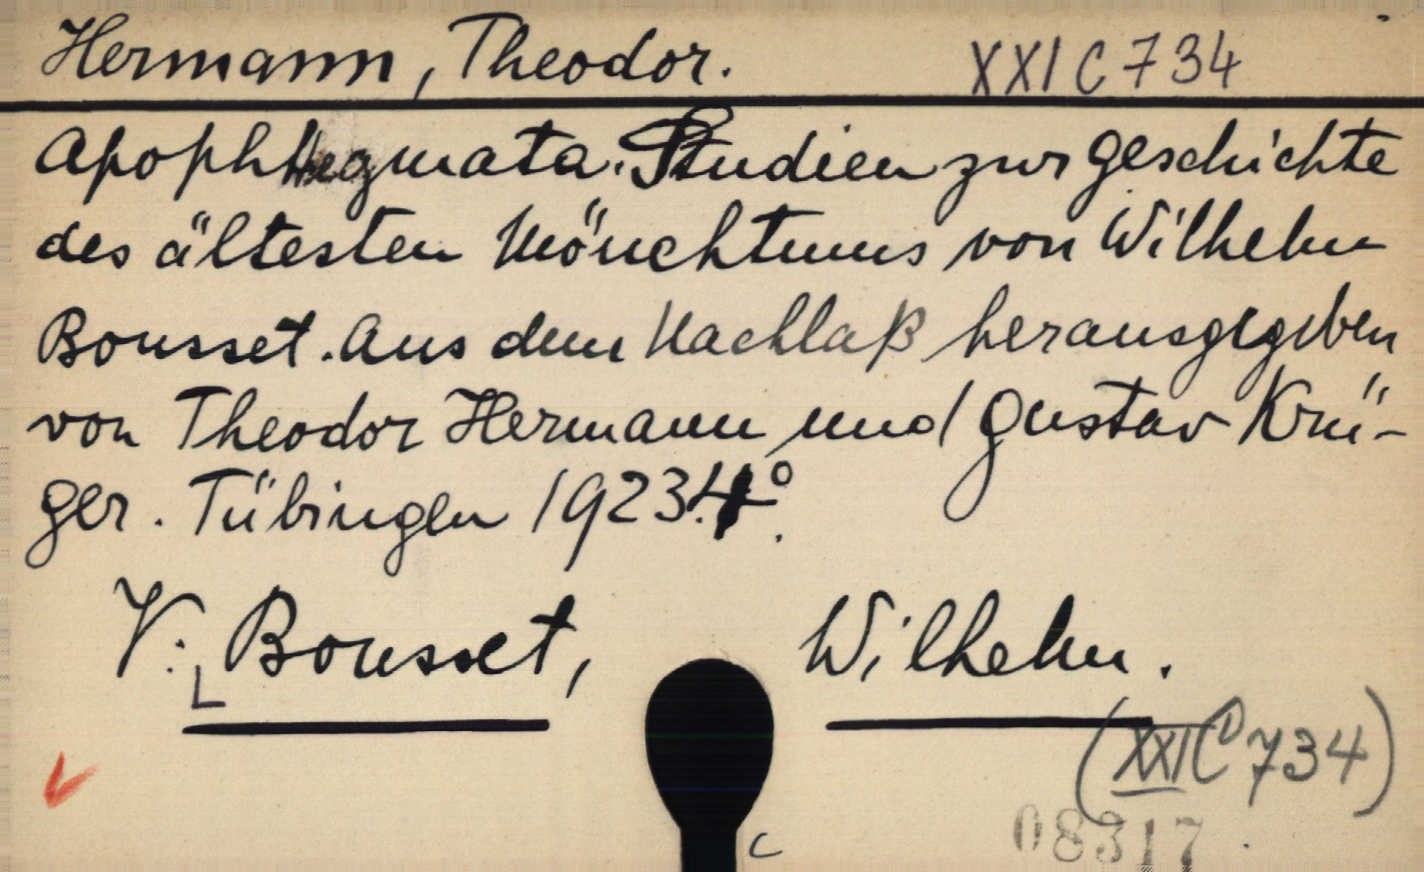 Hermann, Theodor. XXI C 734
Apophthegmata. Studien zur Geschichte
des ältesten Mönchtums von Wilhelm
Bousset. Aus dem Nachlaß herausgegeben
von Theodor Hermann und Gustav Krü-
ger. Tübingen 1923. 4°.
V: Bousset, Wilhelm.
(XXI C 734)
C
08317